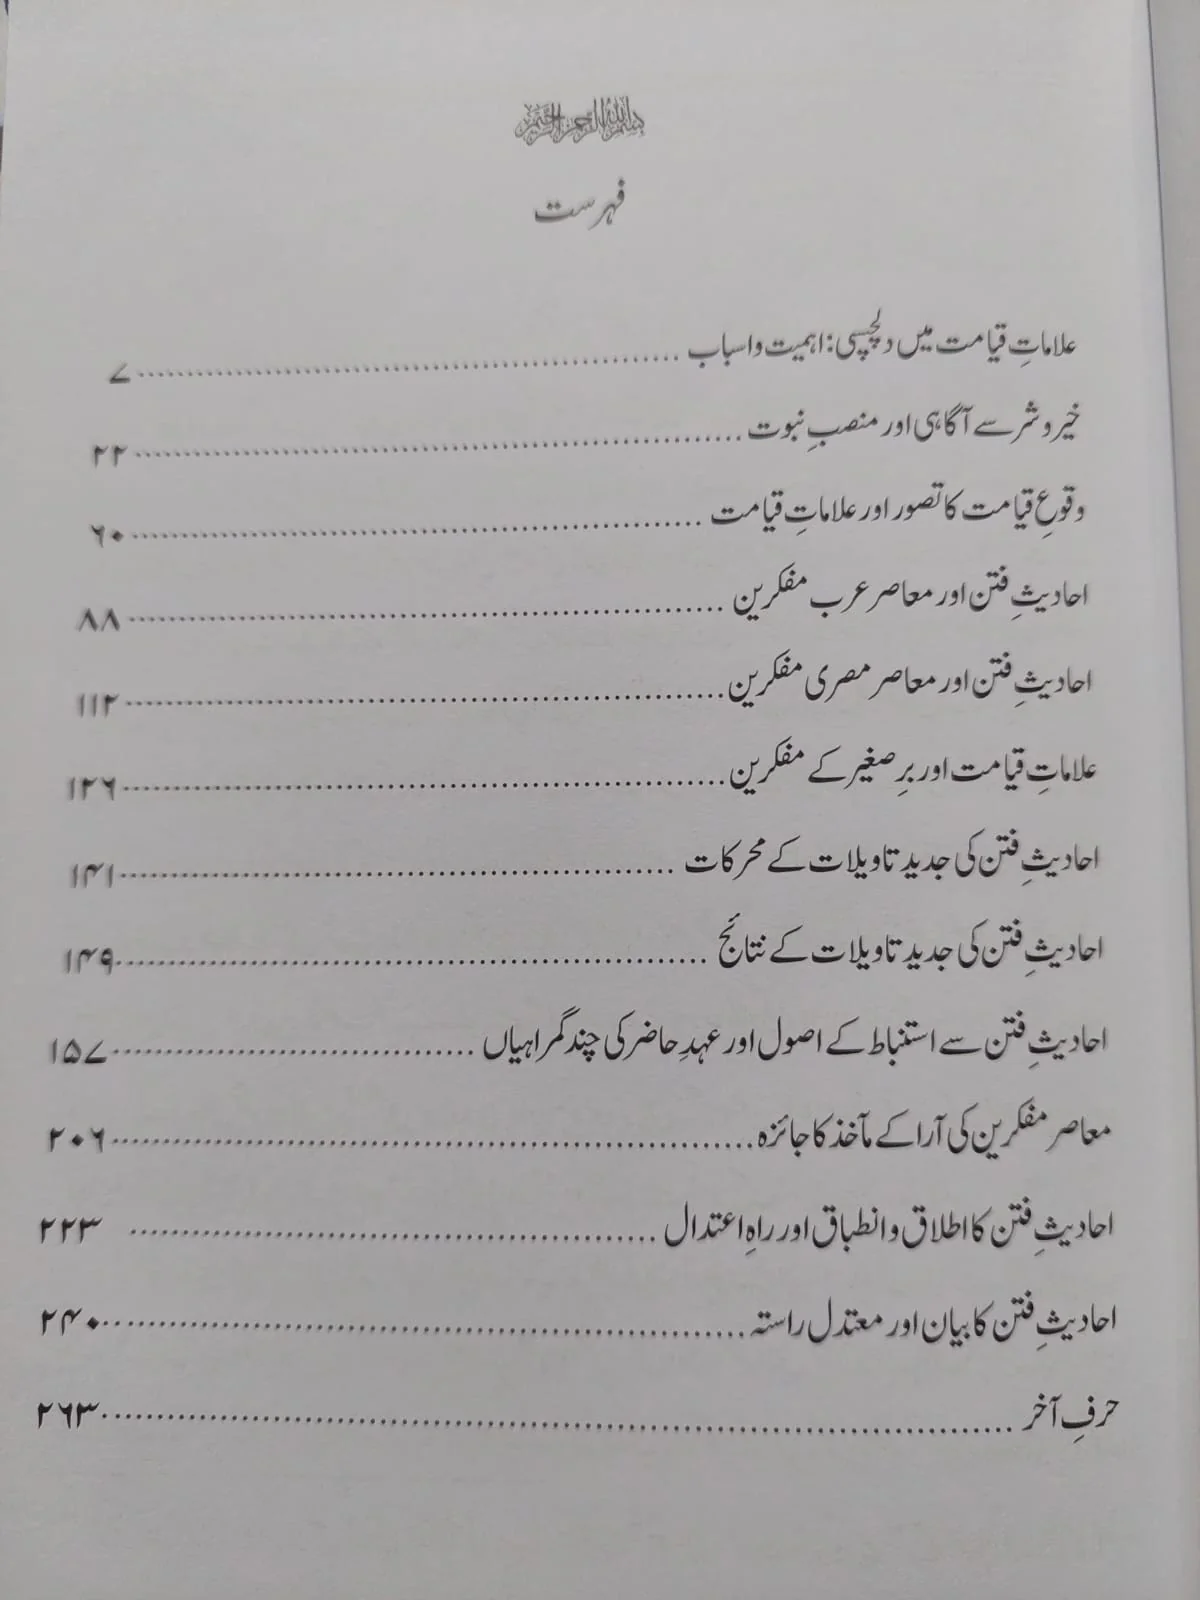 بسم الله الرحمن الرحيم
فہرست
علاماتِ قیامت میں دلچسپی: اہمیت و اسباب ........ ۷
خیر و شر سے آگاہی اور منصبِ نبوت ........ ۲۲
وقوعِ قیامت کا تصور اور علاماتِ قیامت ........ ۶۰
احادیثِ فتن اور معاصر عرب مفکرین ........ ۸۸
احادیثِ فتن اور معاصر مصری مفکرین ........ ۱۱۲
علاماتِ قیامت اور برِصغیر کے مفکرین ........ ۱۲۶
احادیثِ فتن کی جدید تاویلات کے محرکات ........ ۱۴۱
احادیثِ فتن کی جدید تاویلات کے نتائج ........ ۱۴۹
احادیثِ فتن سے استنباط کے اصول اور عہدِ حاضر کی چند گمراہیاں ........ ۱۵۷
معاصر مفکرین کی آرا کے مآخذ کا جائزہ ........ ۲۰۶
احادیثِ فتن کا اطلاق و انطباق اور راہِ اعتدال ........ ۲۲۳
احادیثِ فتن کا بیان اور معتدل راستہ ........ ۲۴۰
حرفِ آخر ........ ۲۶۳